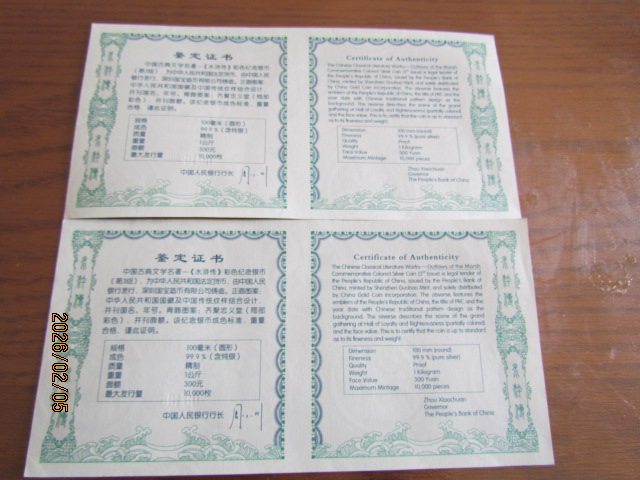 鉴定证书
中国古典文学名著—《水浒传》彩色纪念银币
(第3组),为中华人民共和国法定货币,由中国人民
银行发行,深圳国宝造币有限公司铸造。正面图案:
中华人民共和国国徽及中国传统纹样组合设计,
并刊国名、年号。背面图案:齐聚忠义堂(局部
彩色),并刊面额。该纪念银币成色标准,重量
合格,谨此证明。
规格 100毫米(圆形)
成色 99.9%(含纯银)
质量 精制
重量 1公斤
面额 300元
最大发行量 10,000枚
中国人民银行行长
Certificate of Authenticity
The Chinese Classical Literature Works — Outlaws of the Marsh
Commemorative Colored Silver Coin (3rd Issue) is legal tender of
the People's Republic of China, issued by the People's Bank of
China, minted by Shenzhen Guobao Mint, and solely distributed
by China Gold Coin Incorporation. The obverse features the
emblem of the People's Republic of China, the title of PRC and the
year date with Chinese traditional pattern design as the
background. The reverse describes the scene of the grand
gathering at Hall of Loyalty and Righteousness (partially colored)
and the face value. This is to certify that the coin is up to standard
as to its fineness and weight.
Dimension 100 mm (round)
Fineness 99.9 % (pure silver)
Quality Proof
Weight 1 Kilogram
Face Value 300 Yuan
Maximum Mintage 10,000 pieces
Zhou Xiaochuan
Governor
The People's Bank of China
鉴定证书
中国古典文学名著—《水浒传》彩色纪念银币
(第3组),为中华人民共和国法定货币,由中国人民
银行发行,深圳国宝造币有限公司铸造。正面图案:
中华人民共和国国徽及中国传统纹样组合设计,
并刊国名、年号。背面图案:齐聚忠义堂(局部
彩色),并刊面额。该纪念银币成色标准,重量
合格,谨此证明。
规格 100毫米(圆形)
成色 99.9%(含纯银)
质量 精制
重量 1公斤
面额 300元
最大发行量 10,000枚
中国人民银行行长
Certificate of Authenticity
The Chinese Classical Literature Works — Outlaws of the Marsh
Commemorative Colored Silver Coin (3rd Issue) is legal tender of
the People's Republic of China, issued by the People's Bank of
China, minted by Shenzhen Guobao Mint, and solely distributed
by China Gold Coin Incorporation. The obverse features the
emblem of the People's Republic of China, the title of PRC and the
year date with Chinese traditional pattern design as the
background. The reverse describes the scene of the grand
gathering at Hall of Loyalty and Righteousness (partially colored)
and the face value. This is to certify that the coin is up to standard
as to its fineness and weight.
Dimension 100 mm (round)
Fineness 99.9 % (pure silver)
Quality Proof
Weight 1 Kilogram
Face Value 300 Yuan
Maximum Mintage 10,000 pieces
Zhou Xiaochuan
Governor
The People's Bank of China
2026/02/05